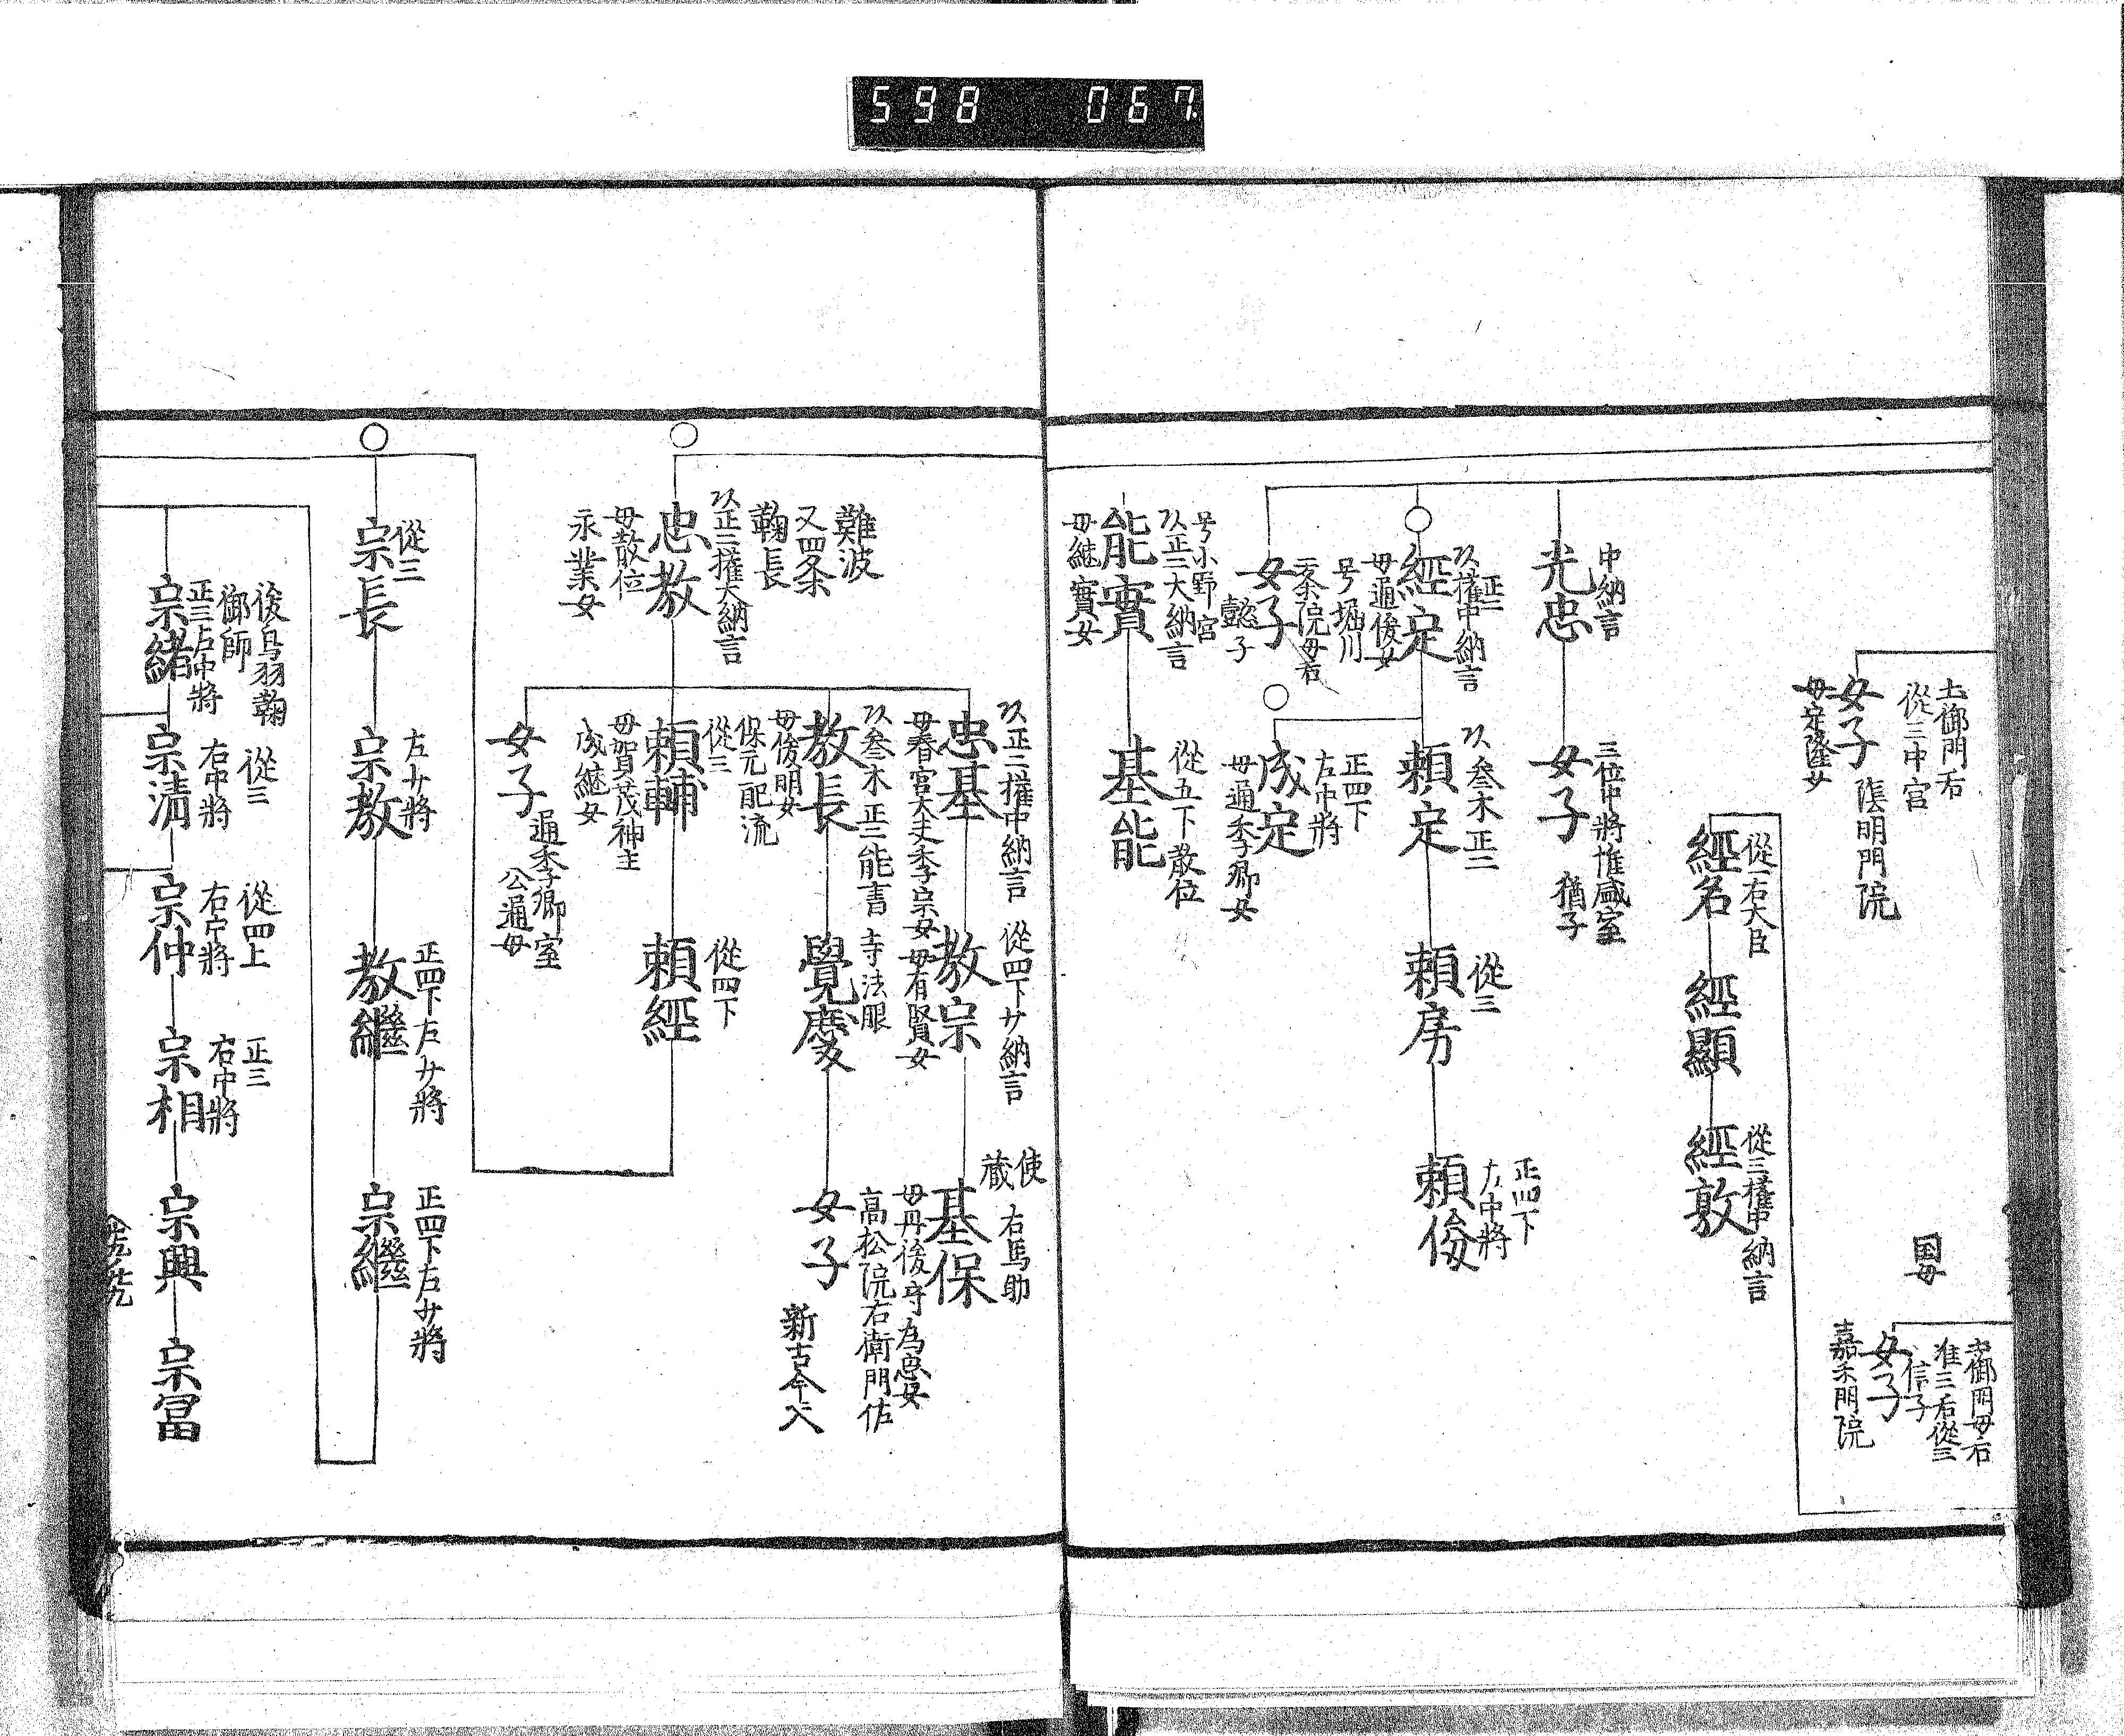 598 067
土御門后
從三中宮
女子 陰明門院
母定隆女
国母
土御門母后
准三后從三
信子
女子
嘉禾門院
從一右大臣
經名
經顯
從三權中納言
經敦
中納言
光忠
三位中將惟盛室
女子
猶子
正二
權中納言
經定
母通俊女
号堀川
叁木正二
頼定
從三
頼房
正四下
左中將
頼俊
二条院母后
女子
懿子
正四下
左中將
成定
母通季卿女
号小野宮
正二大納言
能實
母継實女
從五下散位
基能
難波
又四条
鞠長
正二權大納言
忠教
母散位
永業女
正二權中納言
忠基
母春宮大夫季宗女
從四下少納言
教宗
母有賢女
使
蔵
右馬助
基保
母丹後守為忠女
叁木正二能書
教長
母俊明女
保元配流
寺法眼
覺慶
高松院右衛門佐
女子
新古今入
從三
頼輔
母賀茂神主
成継女
從四下
頼經
女子
通季卿室
公通母
從三
宗長
左少將
宗教
正四下左少將
教繼
正四下左少將
宗繼
後鳥羽鞠
御師
正三左中將
宗緒
從三
右中將
宗清
從四上
右中將
宗仲
正三
右中將
宗相
宗興
宗冨